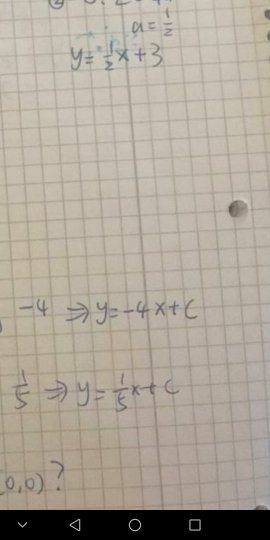 a = 1/2
y = 1/2 x + 3
-4 ⇒ y = -4x + c
1/5 ⇒ y = 1/5 x + c
(0,0)?